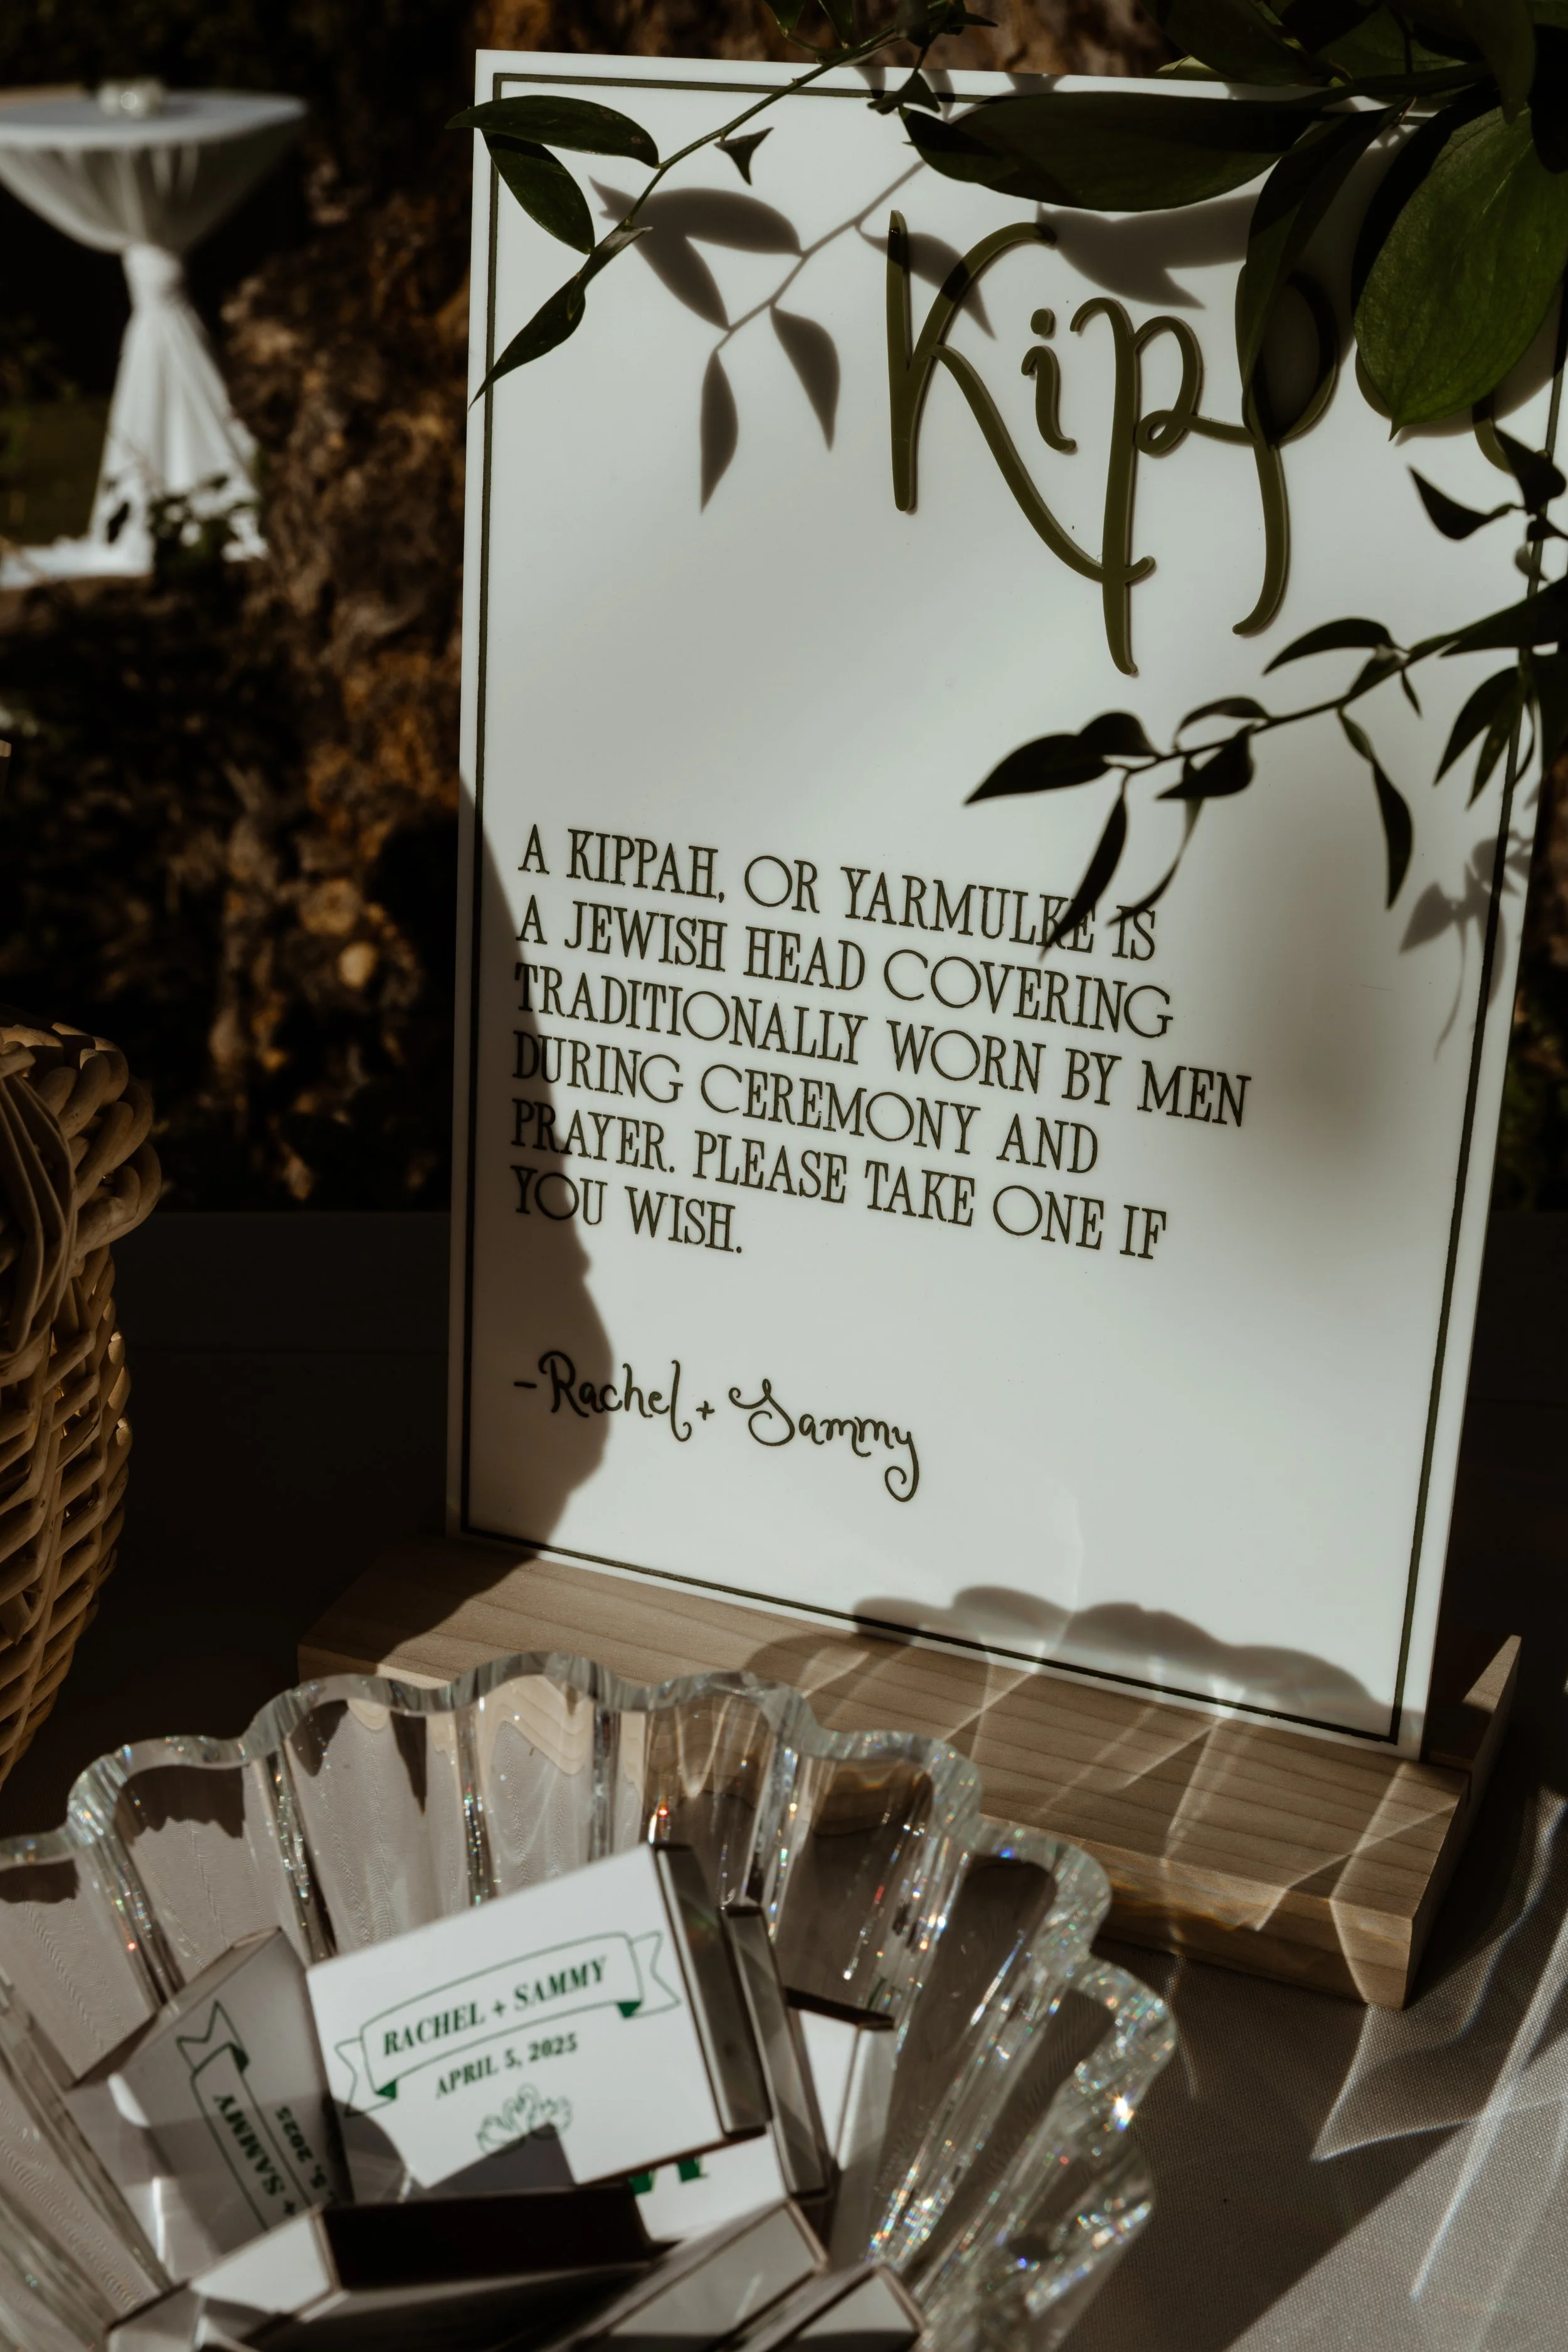 Kipp
A KIPPAH, OR YARMULKE IS
A JEWISH HEAD COVERING
TRADITIONALLY WORN BY MEN
DURING CEREMONY AND
PRAYER. PLEASE TAKE ONE IF
YOU WISH.
-Rachel + Sammy
RACHEL + SAMMY
APRIL 5, 2025
+ SAMMY
5, 2025